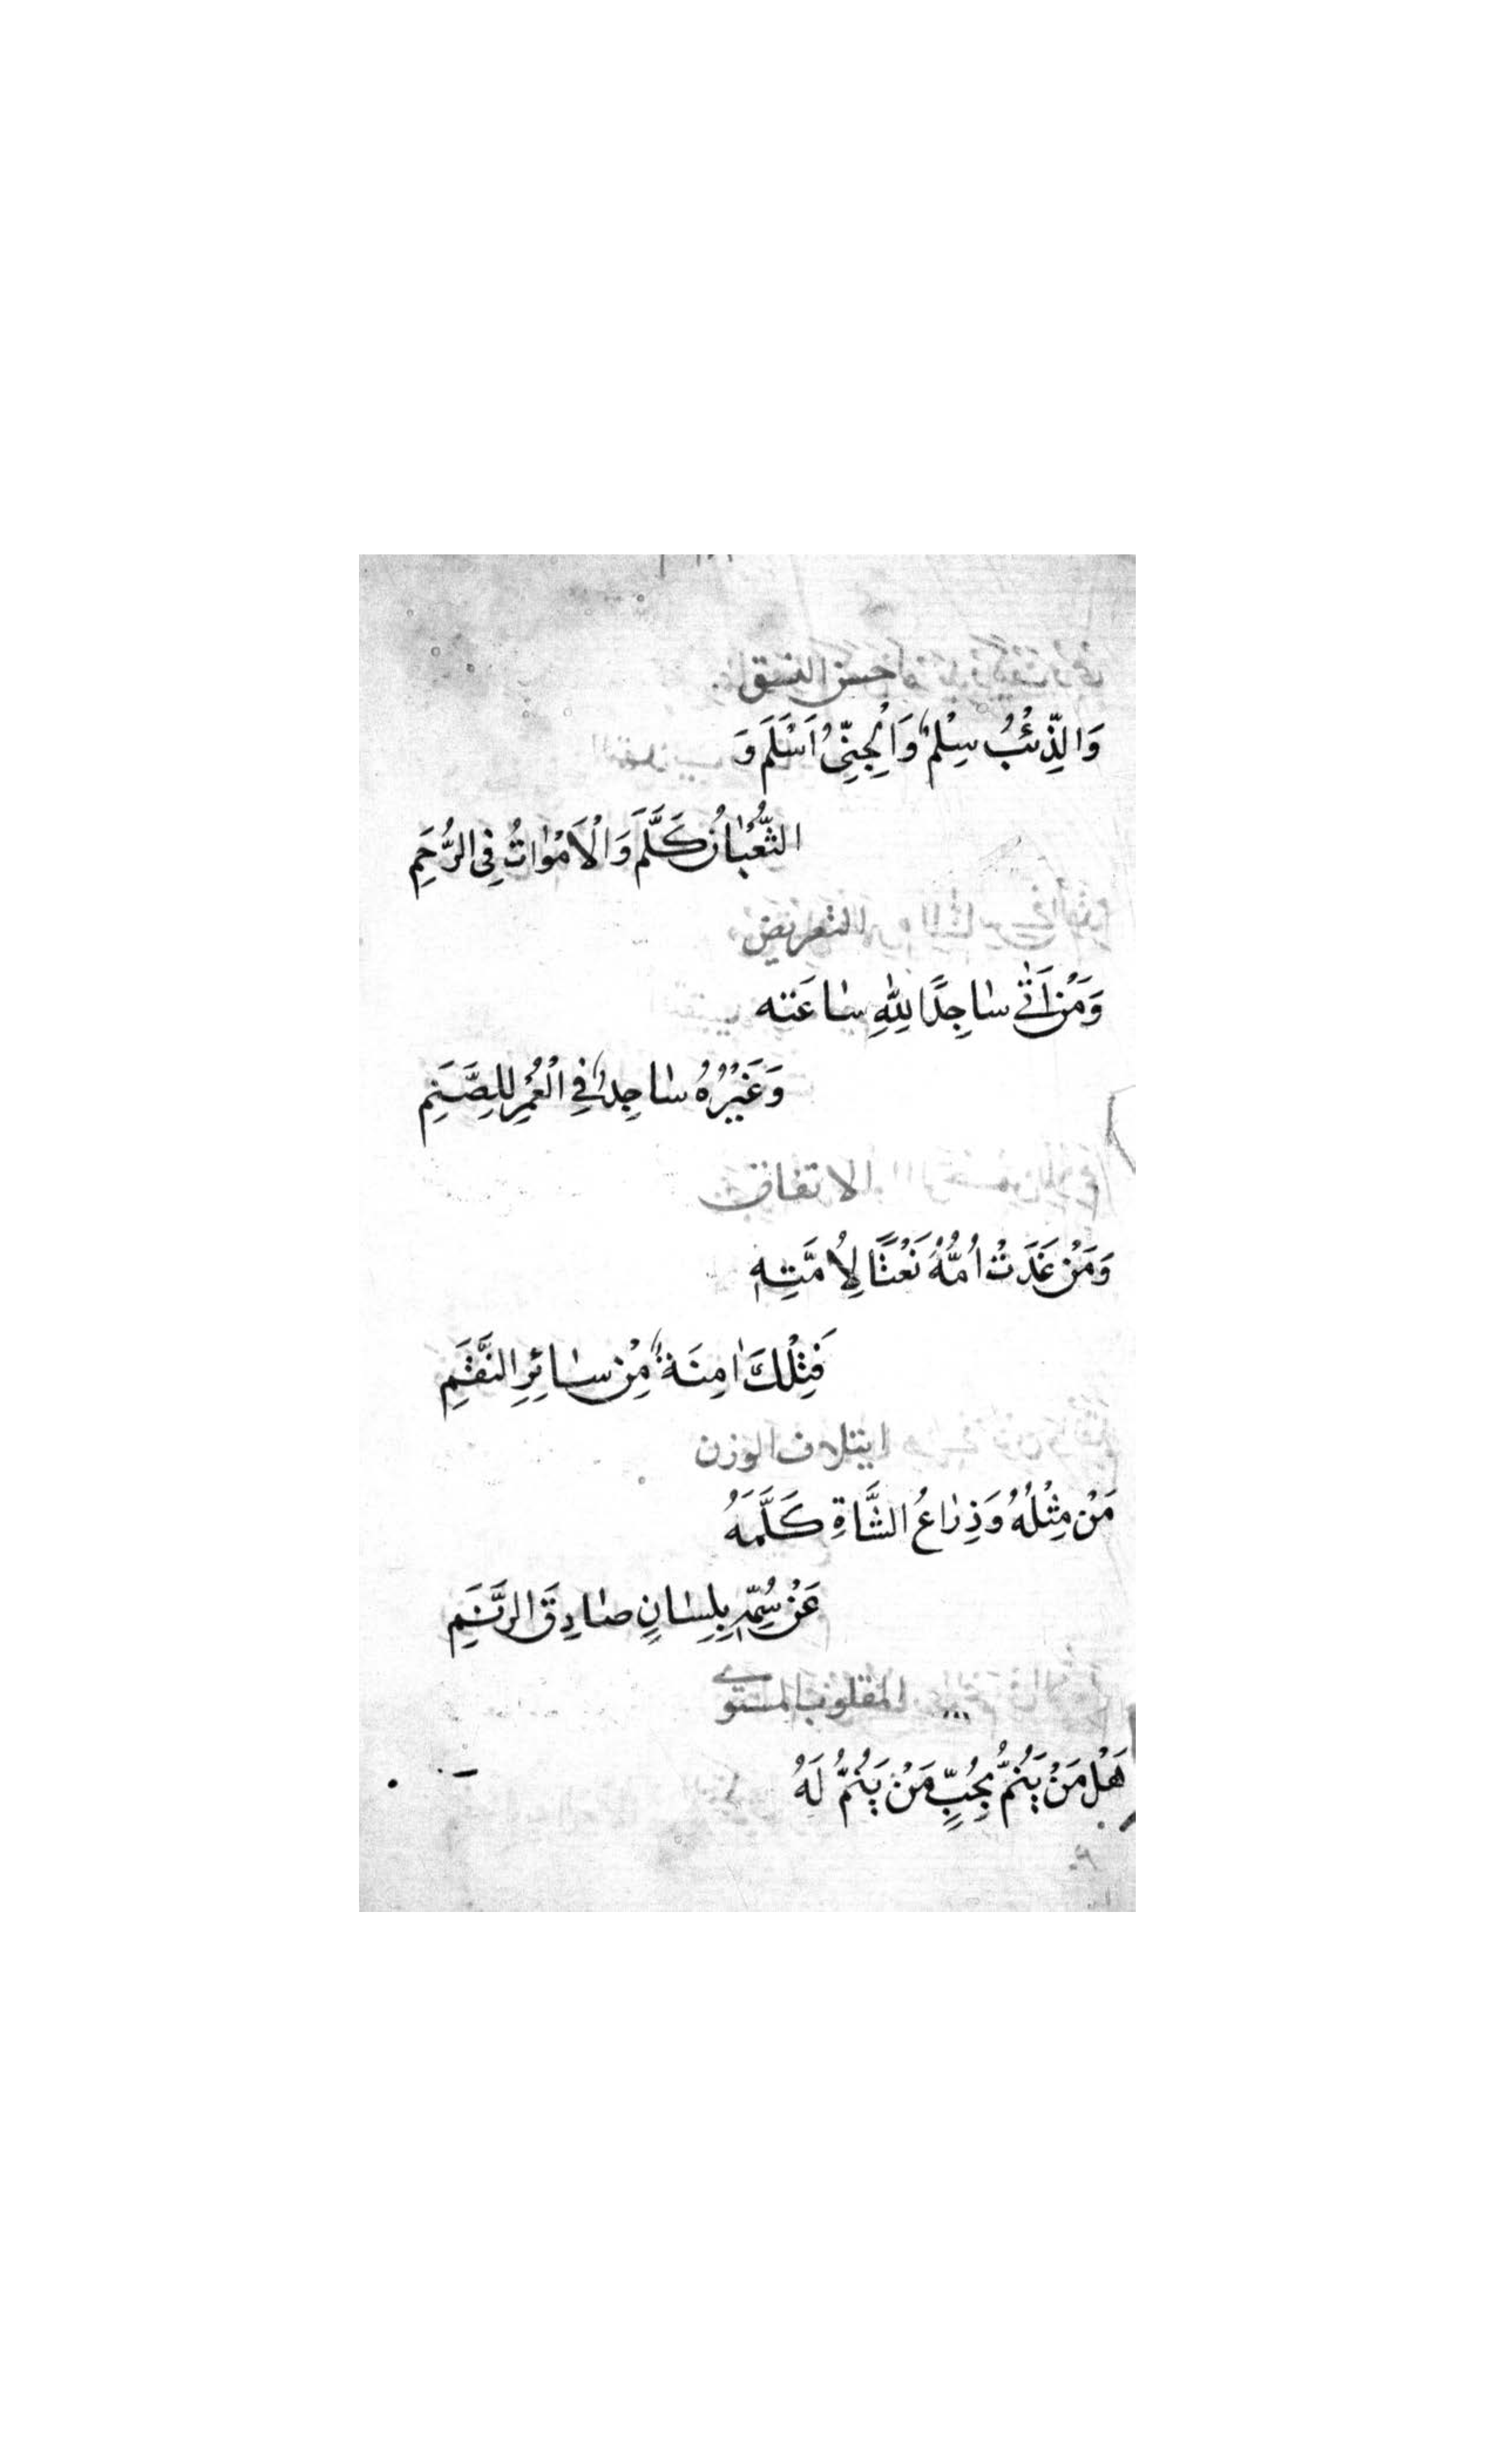 حسن النسق
وَالذِّئْبُ سِلْمٌ وَالْجِنِّىُ اَسْلَمَ وَ
الثُّعْبَانُ كَلَّمَ وَالْاَمْوَاتُ فِى الرُّحَمِ
التعريض
وَمَنْ اَتٰى سَاجِدًا لِلّٰهِ سَاعَته
وَغَيْرُهُ سَاجِدٌ فِى الْعُمْرِ لِلصَّنَمِ
الاتفاق
وَمَنْ غَدَتْ اُمُّهُ نَعْتًا لِاُمَّتِهِ
فَتِلْكَ اٰمِنَةٌ مِنْ سَائِرِ النَّقَمِ
ايتلاف الوزن
مَنْ مِثْلُهُ وَذِرَاعُ الشَّاةِ كَلَّمَهُ
عَنْ سُمِّهِ بِلِسَانٍ صَادِقَ الرَّنَمِ
المقلوب المستوى
هَلْ مَنْ يَنُمُّ بِحُبِّ مَنْ يَنُمُّ لَهُ